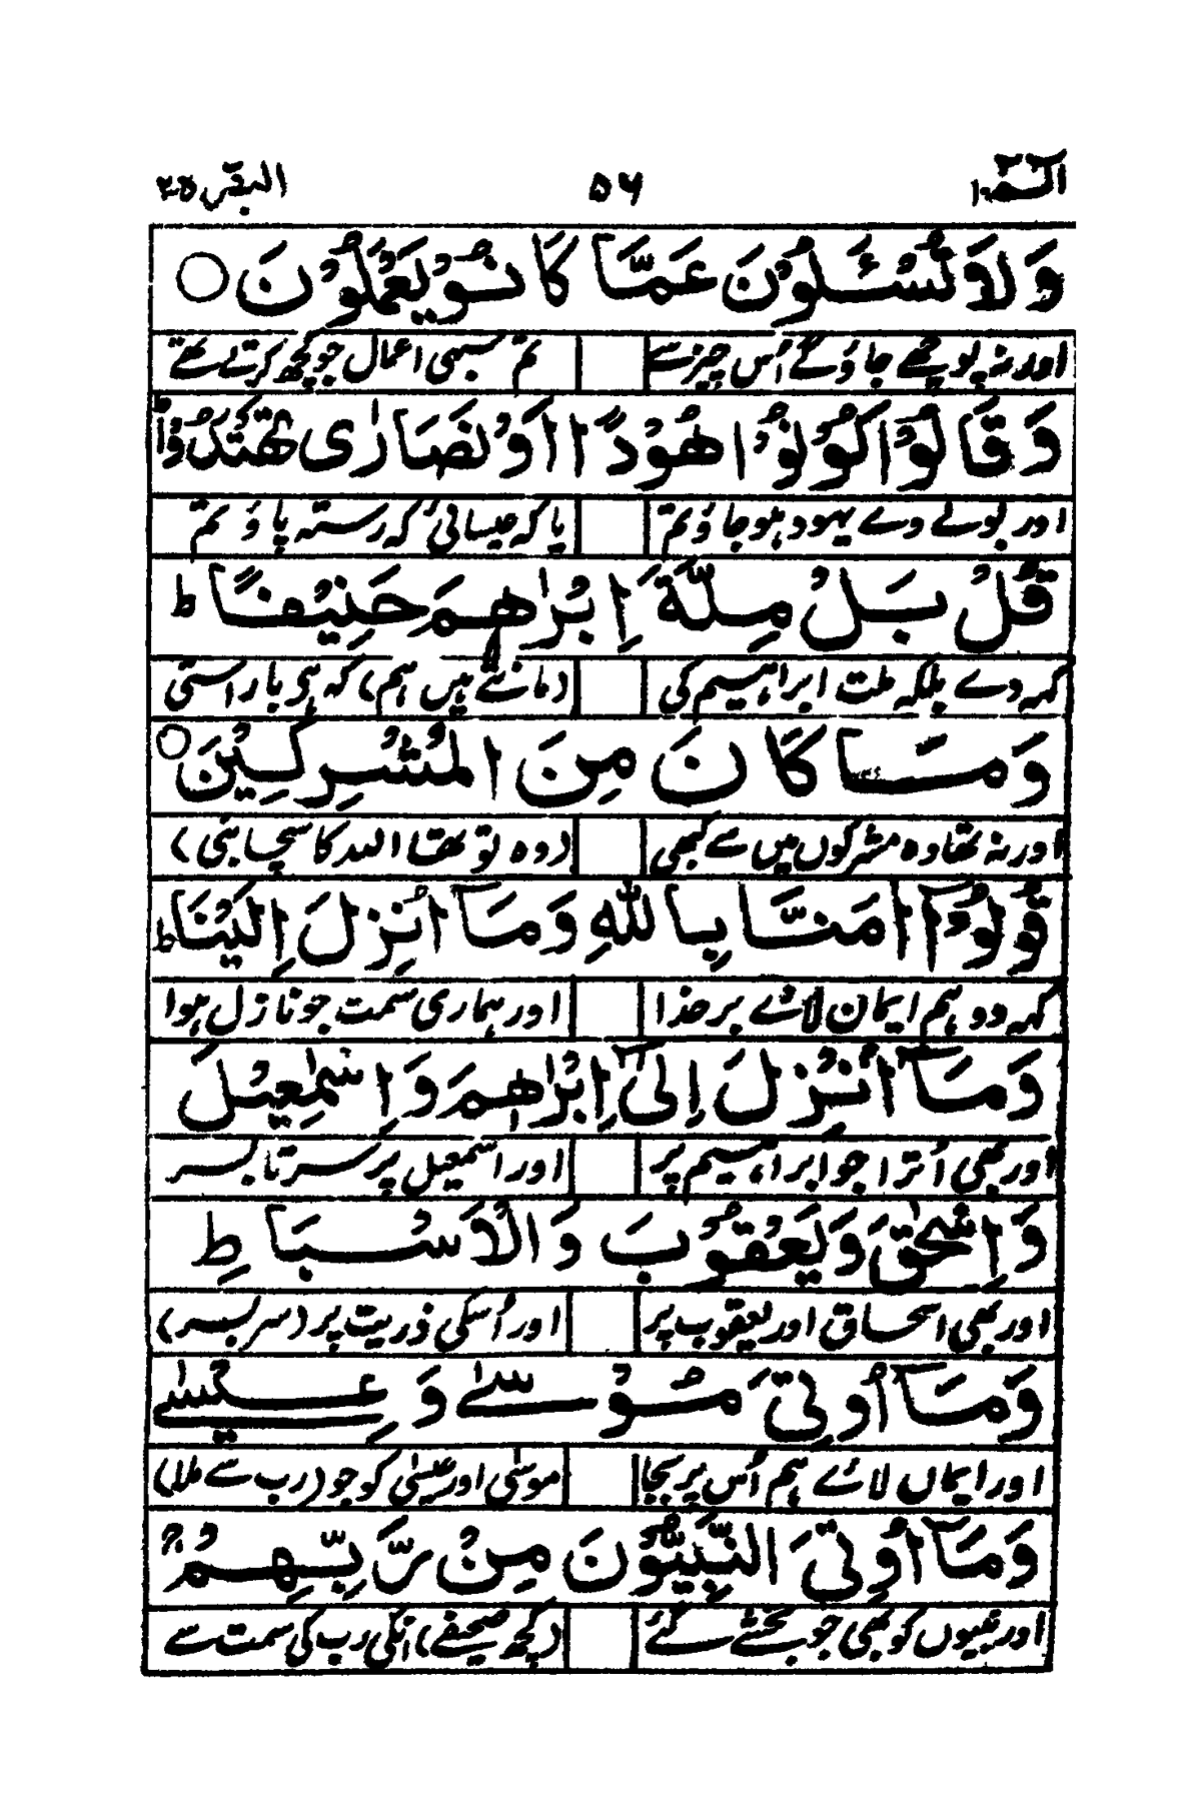 الٓمّٓ ۱ ۵۶ البقرہ ۲
وَلَا تُسْئَلُوْنَ عَمَّا كَانُوْ يَعْمَلُوْنَ ○
اور نہ پوچھے جاؤ گے اُس چیز سے تم سبھی اعمال جو کچھ کرتے تھے
وَقَالُوْا كُوْنُوْا هُوْدًا اَوْ نَصَارٰى تَهْتَدُوْا ؕ
اور بولے وے یہود ہو جاؤ تم یا کہ عیسائی کہ رستہ پاؤ تم
قُلْ بَلْ مِلَّةَ اِبْرٰاهِمَ حَنِيْفًا ؕ
کہہ دے بلکہ ملت ابراہیم کی (مانتے ہیں ہم) کہ ہی باراستی
وَمَا كَانَ مِنَ الْمُشْرِكِيْنَ ○
اور نہ تھا وہ مشرکوں میں سے کبھی (وہ تو تھا اللہ کا سچا نبی)
قُوْلُوْٓا اٰمَنَّا بِاللّٰهِ وَمَآ اُنْزِلَ اِلَيْنَا ؕ
کہہ دو ہم ایمان لائے بر خدا اور ہماری سمت جو نازل ہوا
وَمَآ اُنْزِلَ اِلٰٓى اِبْرٰاهِمَ وَاِسْمٰعِيْلَ
اور بھی اُترا جو ابراہیم پر اور اسمٰعیل پر سر تا بسر
وَاِسْحٰقَ وَيَعْقُوْبَ وَالْاَسْبَاطِ
اور بھی اسحاق اور یعقوب پر اور اُسکی ذریت پر (سربسر)
وَمَآ اُوْتِىَ مُوْسٰے وَعِيْسٰے
اور ایماں لائے ہم اُس پر بجا موسیٰ اور عیسیٰ کو جو (رب سے ملا)
وَمَآ اُوْتِىَ النَّبِيُّوْنَ مِنْ رَّبِّهِمْ ۚ
اور نبیوں کو بھی جو بخشے گئے (کچھ صحیفے) انکی رب کی سمت سے